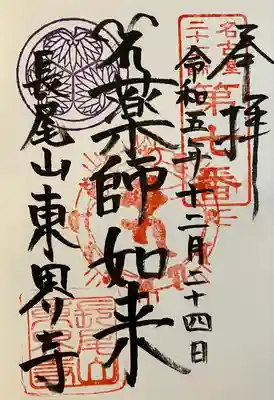 奉拝
名古屋
第七番
令和五年十二月二十四日
薬師如来
長尾山東界寺